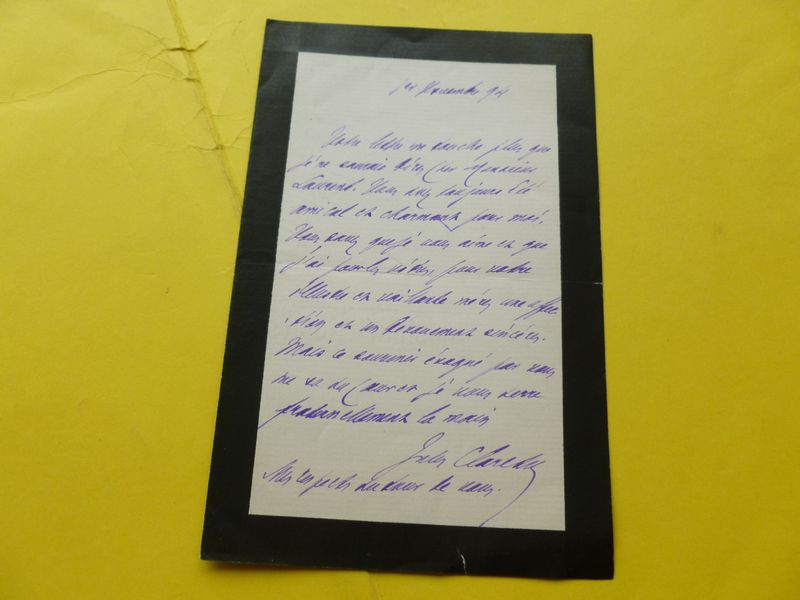 1er Novembre 94
Votre lettre me touche plus que
je ne saurais dire, cher Monsieur
Laurent. Vous avez toujours été
amical et charmant pour moi.
Vous savez que je vous aime et que
j'ai pour les vôtres, pour votre
illustre et vaillante mère, une affec
tion et un dévouement sincères.
Mais ce souvenir évoqué par vous
me va au cœur et je vous serre
fraternellement la main
Jules Claretie
Mes respects autour de vous.